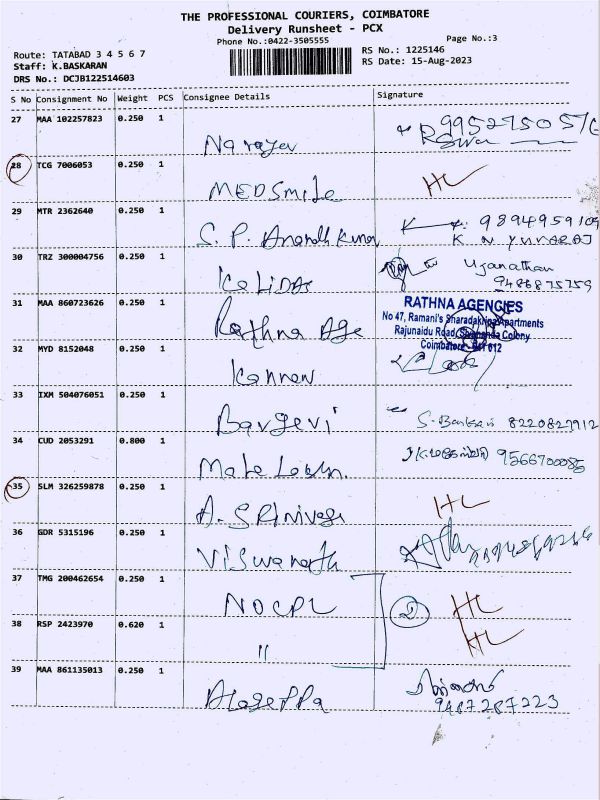 THE PROFESSIONAL COURIERS, COIMBATORE
Delivery Runsheet - PCX
Phone No.:0422-3505555
Page No.:3
Route: TATABAD 3 4 5 6 7
Staff: K.BASKARAN
DRS No.: DCJB122514603
RS No.: 1225146
RS Date: 15-Aug-2023
S No Consignment No Weight PCS Consignee Details Signature
27 MAA 102257823 0.250 1
28 TCG 7006053 0.250 1
MEDSmile HL
29 MTR 2362640 0.250 1
9894959109
S. P. Anandh Kumar K N YUVARAJ
30 TRZ 300004756 0.250 1
KaLiDAS 9486875759
31 MAA 860723626 0.250 1
RATHNA AGENCIES
No 47, Ramani's Sharadakripa Apartments
Rajunaidu Road, Sivananda Colony
Coimbatore - 641 012
Rathna Age
32 MYD 8152048 0.250 1
Kannan
33 IXM 504076051 0.250 1
8220827912
34 CUD 2053291 0.800 1
9566700085
35 SLM 326259878 0.250 1
A. SRinivasa HL
36 GDR 5315196 0.250 1
Viswanath
37 TMG 200462654 0.250 1
NOCPL 2 HL
38 RSP 2423970 0.620 1
" HL
39 MAA 861135013 0.250 1
AlagePPa 9487287223